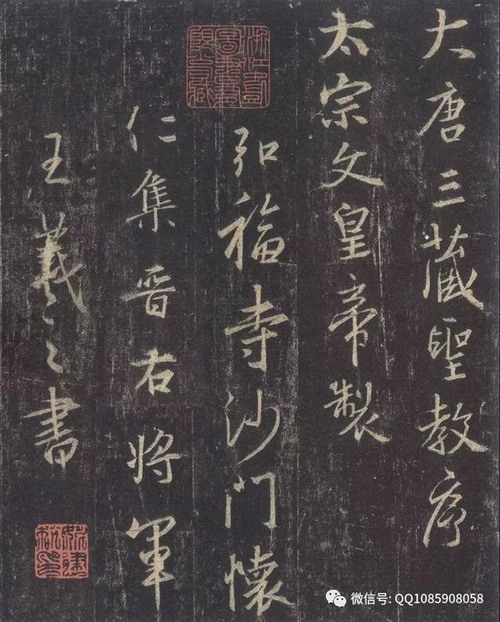 大唐三藏聖教序
太宗文皇帝製
弘福寺沙門懷
仁集晉右將軍
王羲之書
微信号: QQ1085908058